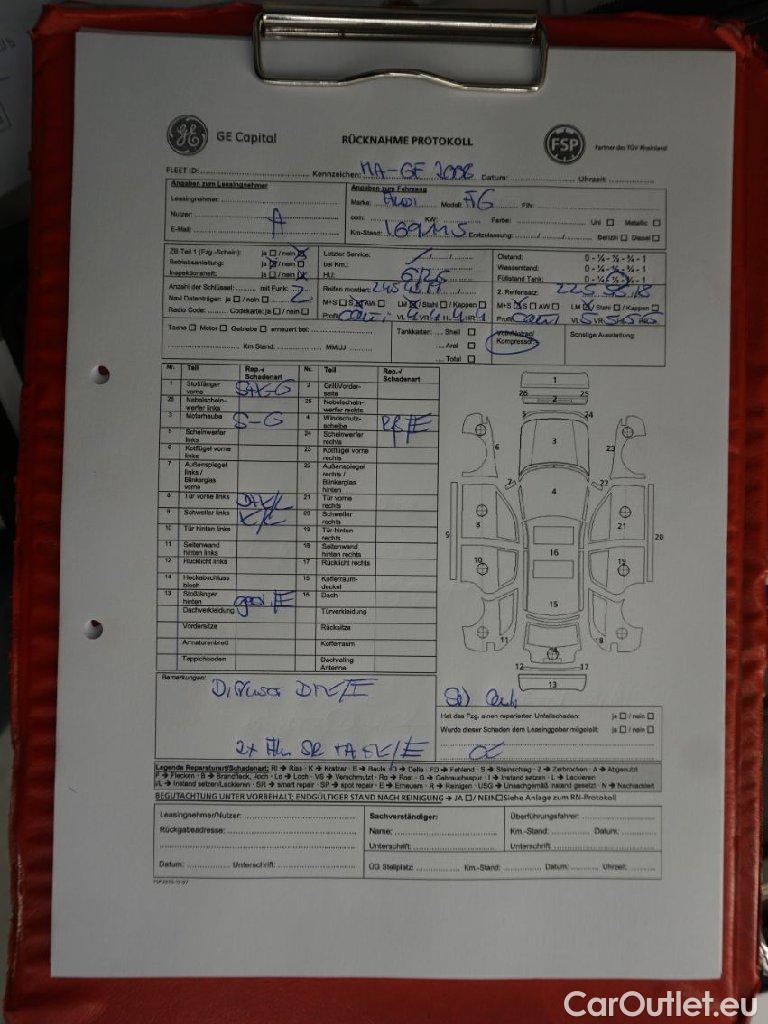 GE Capital
RÜCKNAHME PROTOKOLL
FSP
Partner des TÜV Rheinland
FLEET ID: Kennzeichen: MA-GE 2008 Datum: Uhrzeit:
Angaben zum Leasingnehmer
Leasingnehmer:
Nutzer: A
E-Mail:
Angaben zum Fahrzeug
Marke: Audi Modell: A6 FIN:
ccm: KW: Farbe: Uni Metallic
Km-Stand: Erstzulassung: Benzin Diesel
ZB Teil 1 (Fzg.-Schein): ja / nein
Betriebsanleitung: ja / nein
Inspektionsheft: ja / nein
Letzter Service:
bei Km.:
HU:
Ölstand: 0 - ¼ - ½ - ¾ - 1
Wasserstand: 0 - ¼ - ½ - ¾ - 1
Füllstand Tank: 0 - ¼ - ½ - ¾ - 1
Anzahl der Schlüssel: mit Funk: 2
Navi Datenträger: ja / nein
Radio Code: Codekarte: ja / nein
Reifen montiert:
M+S S AW LM / Stahl / Kappen
Profil VL VR HL HR
2. Reifensatz:
M+S S AW LM / Stahl / Kappen
Profil VL 5 VR 5 HL 5 HR 5
Tacho Motor Getriebe erneuert bei:
Km Stand: MM/JJ
Tankkarten: Shell
Aral
Total
Kompressor
Sonstige Ausstattung:
Nr. Teil Rep.-/ Schadenart Nr. Teil Rep.-/ Schadenart
1 Stoßfänger vorne 2 Grill/Vorderseite
26 Nebelscheinwerfer links 25 Nebelscheinwerfer rechts
3 Motorhaube S-G 4 Windschutzscheibe
5 Scheinwerfer links 24 Scheinwerfer rechts
6 Kotflügel vorne links 23 Kotflügel vorne rechts
7 Außenspiegel links / Blinkerglas vorne 22 Außenspiegel rechts / Blinkerglas hinten
8 Tür vorne links 21 Tür vorne rechts
9 Schweller links K/L 20 Schweller rechts
10 Tür hinten links 19 Tür hinten rechts
11 Seitenwand hinten links 18 Seitenwand hinten rechts
12 Rücklicht links 17 Rücklicht rechts
14 Heckabschlussblech 15 Kofferraumdeckel
13 Stoßfänger hinten 16 Dach
Dachverkleidung Türverkleidung
Vordersitze Rücksitze
Armaturenbrett Kofferraum
Teppichboden Dachreling Antenne
1
26 25
2
5 24
3
6 23
7 22
4
9 20
21
16
10
15
11
14
12 17
13
Bemerkungen:
Hat das Fzg. einen reparierten Unfallschaden: ja / nein
Wurde dieser Schaden dem Leasinggeber mitgeteilt: ja / nein
Legende Reparaturart/Schadenart: RI → Riss - K → Kratzer - B → Beule - D → Delle - FD → Fehlend - S → Steinschlag - Z → Zerbrochen - A → Abgenutzt
F → Flecken - B → Brandfleck, -loch - Lo → Loch - VS → Verschmutzt - Ro → Rost - G → Gebrauchsspur - I → Instand setzen - L → Lackieren
I/L → Instand setzen/Lackieren - SR → smart repair - SP → spot repair - E → Erneuern - R → Reinigen - USG → Unsachgemäß instand gesetzt - N → Nachlackiert
BEGUTACHTUNG UNTER VORBEHALT; ENDGÜLTIGER STAND NACH REINIGUNG → JA / NEIN Siehe Anlage zum RN-Protokoll
Leasingnehmer/Nutzer:
Rückgabeadresse:
Datum: Unterschrift:
Sachverständiger:
Name:
Unterschrift:
Überführungsfahrer:
Km.-Stand: Datum:
Unterschrift:
ÜG Stellplatz: Km.-Stand: Datum: Uhrzeit:
CarOutlet.eu